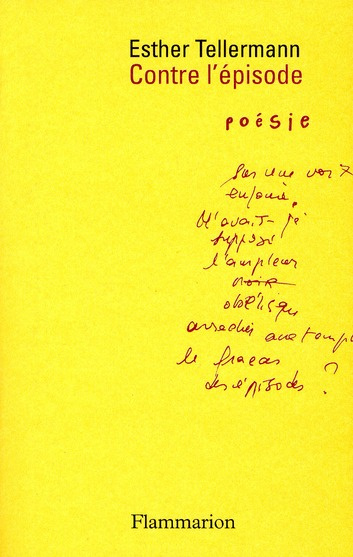 Esther Tellermann
Contre l'épisode
poésie
Sur une voix
enfouie,
N'avait-je
supposé
l'ampleur
noire
obélisque
arrachée aux temps
le fracas
des épisodes ?
Flammarion